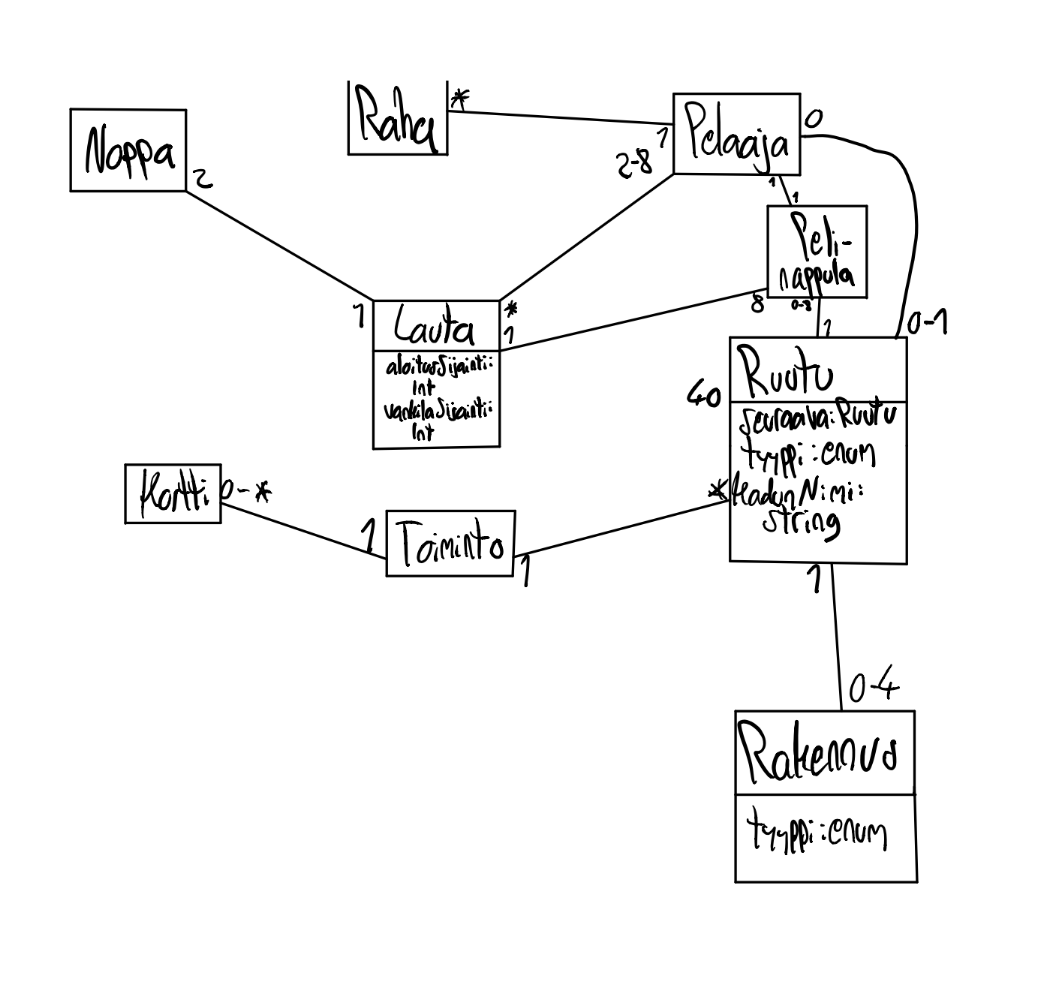 Raha
*
Pelaaja
0
1
2-8
Noppa
2
1
1
Peli-
nappula
8
0-8
1
0-1
1
Lauta
*
1
aloitusSijainti:
Int
vankilaSijainti:
Int
40
Ruutu
seuraava:Ruutu
tyyppi:enum
KadunNimi:
string
*
Kortti
0-*
1
Toiminto
1
1
0-4
Rakennus
tyyppi:enum